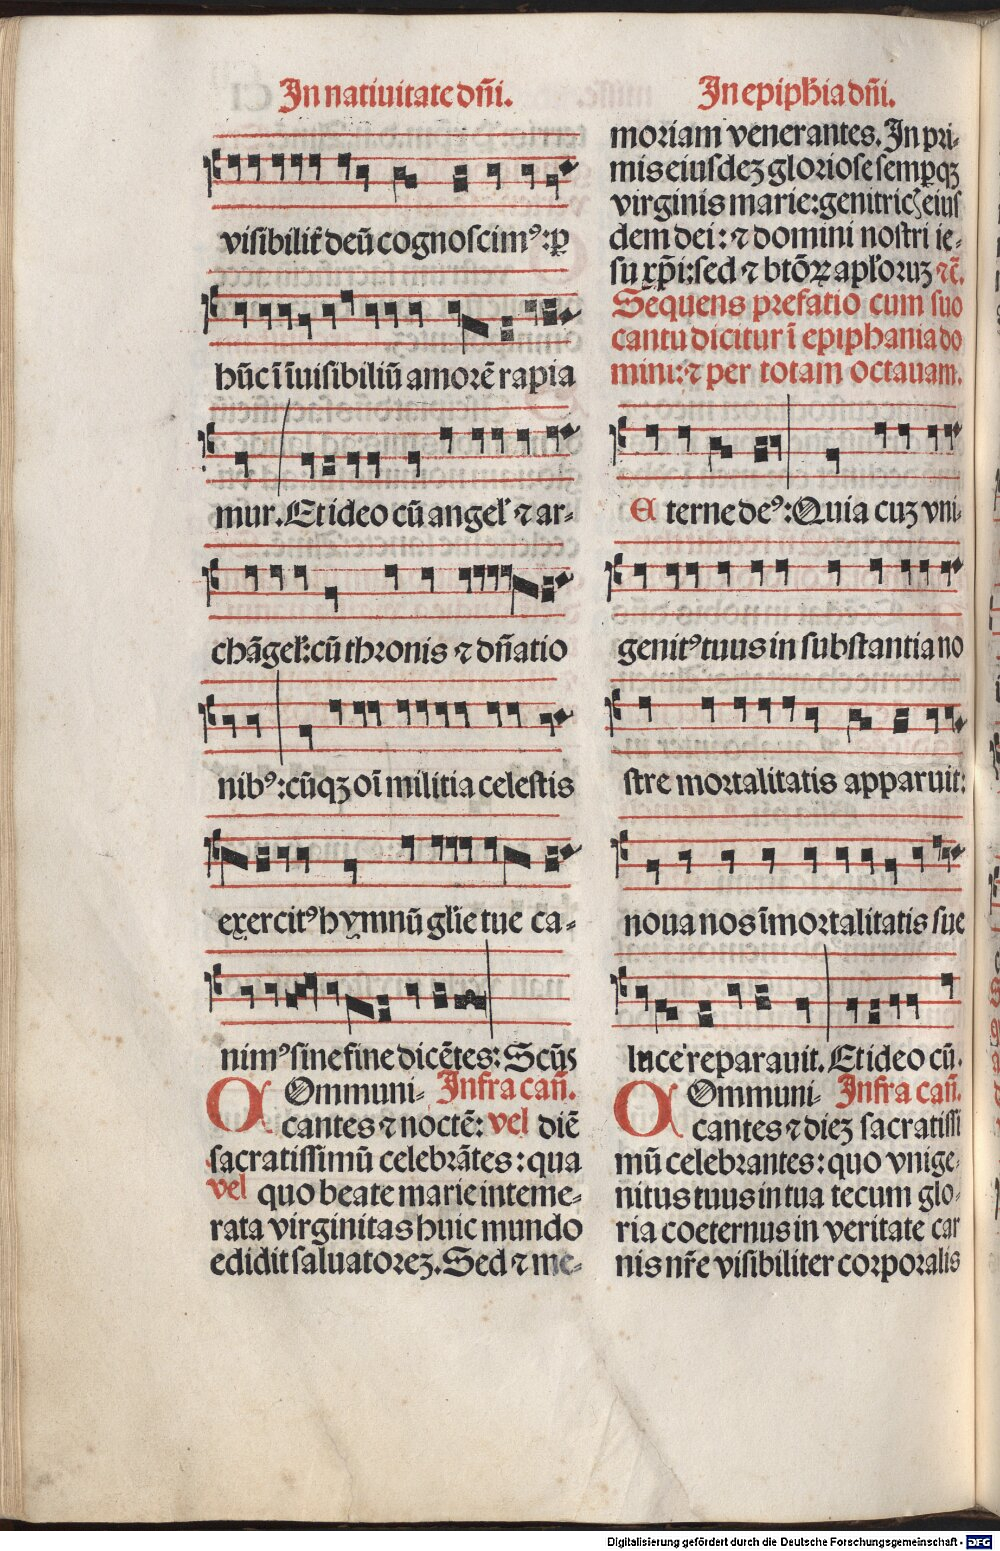 In natiuitate dñi.
visibilit̃ deũ cognoscimꝰ: ꝑ
hũc ĩ ĩuisibiliũ amorẽ rapia
mur. Et ideo cũ angel̃ ⁊ ar-
chãgel̃: cũ thronis ⁊ dñatio
nibꝰ: cũqꝫ oĩ militia celestis
exercitꝰ hymnũ gl̃ie tue ca-
nimꝰ sine fine dicẽtes: Scũs
COmmuni- Infra cañ.
cantes ⁊ noctẽ: vel diẽ
sacratissimũ celebrãtes: qua
vel quo beate marie inteme-
rata virginitas huic mundo
edidit saluatoreꝫ. Sed ⁊ me-
In epiph̃ia dñi.
moriam venerantes. In pri-
mis eiusdeꝫ gloriose semꝑqꝫ
virginis marie: genitricꝭ eius
dem dei: ⁊ domini nostri ie-
su xp̃i: sed ⁊ btõꝝ apl̃oruꝫ ⁊c̃.
Sequens prefatio cum suo
cantu dicitur ĩ epiphania do
mini: ⁊ per totam octauam.
Eterne deꝰ: Quia cuꝫ vni-
genitꝰ tuus in substantia no
stre mortalitatis apparuit:
noua nos ĩmortalitatis sue
luce reparauit. Et ideo cũ.
COmmuni- Infra cañ.
cantes ⁊ dieꝫ sacratissi
mũ celebrantes: quo vnige-
nitus tuus in tua tecum glo-
ria coeternus in veritate car
nis nr̃e visibiliter corporalis
Digitalisierung gefördert durch die Deutsche Forschungsgemeinschaft - DFG